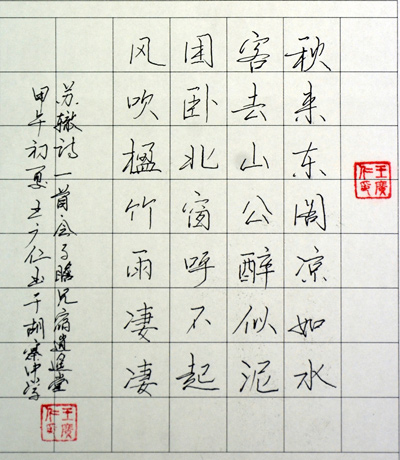 王廣仁印
秋来东阁凉如水
客去山公醉似泥
困卧北窗呼不起
风吹楹竹雨凄凄
苏辙诗一首会子瞻兄宿逍遥堂
甲午初夏王广仁书于胡寨中学
王廣仁印